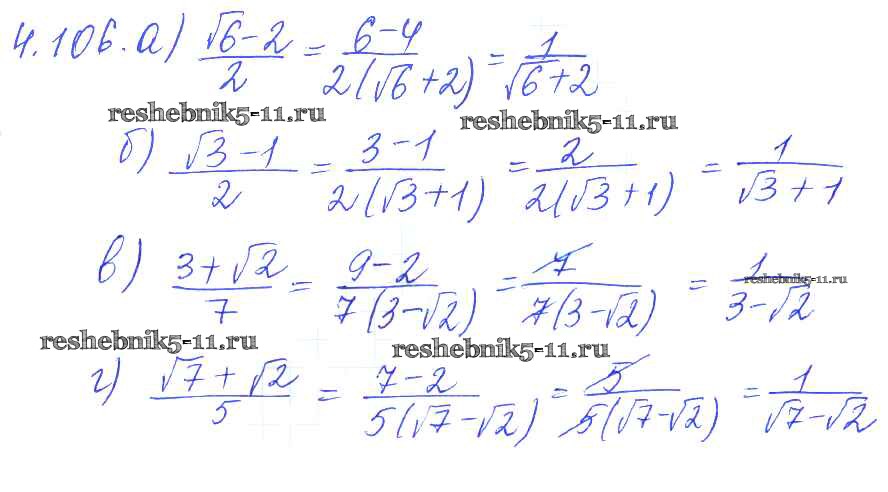 4.106. а) (√6 - 2)/2 = (6 - 4)/(2(√6 + 2)) = 1/(√6 + 2)
reshebnik5-11.ru reshebnik5-11.ru
б) (√3 - 1)/2 = (3 - 1)/(2(√3 + 1)) = 2/(2(√3 + 1)) = 1/(√3 + 1)
в) (3 + √2)/7 = (9 - 2)/(7(3 - √2)) = 7/(7(3 - √2)) = 1/(3 - √2)
reshebnik5-11.ru
reshebnik5-11.ru reshebnik5-11.ru
г) (√7 + √2)/5 = (7 - 2)/(5(√7 - √2)) = 5/(5(√7 - √2)) = 1/(√7 - √2)